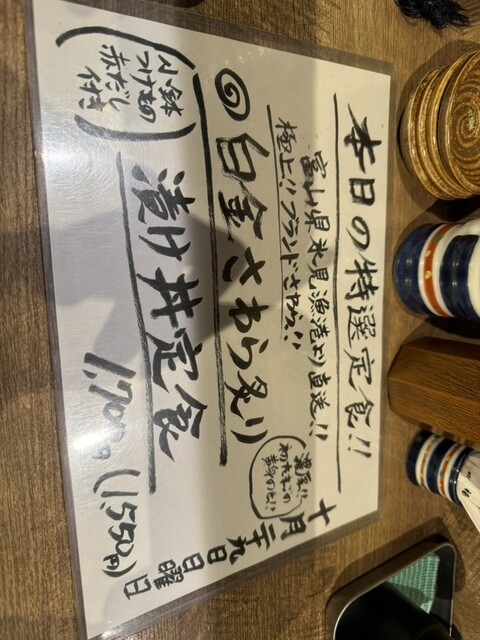 本日の特選定食!!
富山県氷見漁港より直送!!
極上!!ブランドさわら!!
◎白金さわら炙り
漬け丼定食
小鉢
つけもの
赤だし
付
濃厚!!
初たまごの
黄身のせ!!
1,700円(1550円)
十月二十九日日曜日